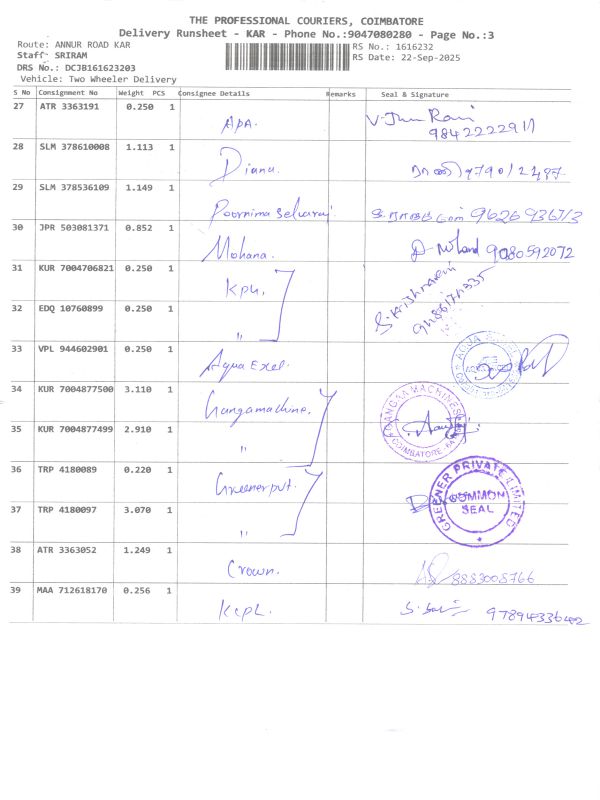 THE PROFESSIONAL COURIERS, COIMBATORE
Delivery Runsheet - KAR - Phone No.:9047080280 - Page No.:3
Route: ANNUR ROAD KAR RS No.: 1616232
Staff: SRIRAM RS Date: 22-Sep-2025
DRS No.: DCJB161623203
Vehicle: Two Wheeler Delivery
S No Consignment No Weight PCS Consignee Details Remarks Seal & Signature
27 ATR 3363191 0.250 1 APA. 9842222911
28 SLM 378610008 1.113 1 Diana.
29 SLM 378536109 1.149 1 Poornima Selvaraj
30 JPR 503081371 0.852 1 Mohana. 9080592072
31 KUR 7004706821 0.250 1 KPH.
32 EDQ 10760899 0.250 1 "
33 VPL 944602901 0.250 1 Aqua Excel.
34 KUR 7004877500 3.110 1 Gangamachine. MACHINES COIMBATORE
35 KUR 7004877499 2.910 1 "
36 TRP 4180089 0.220 1 Greenerpvt. GREENER PRIVATE LIMITED COMMON SEAL
37 TRP 4180097 3.070 1 "
38 ATR 3363052 1.249 1 Crown. 8883008766
39 MAA 712618170 0.256 1 KCPL.